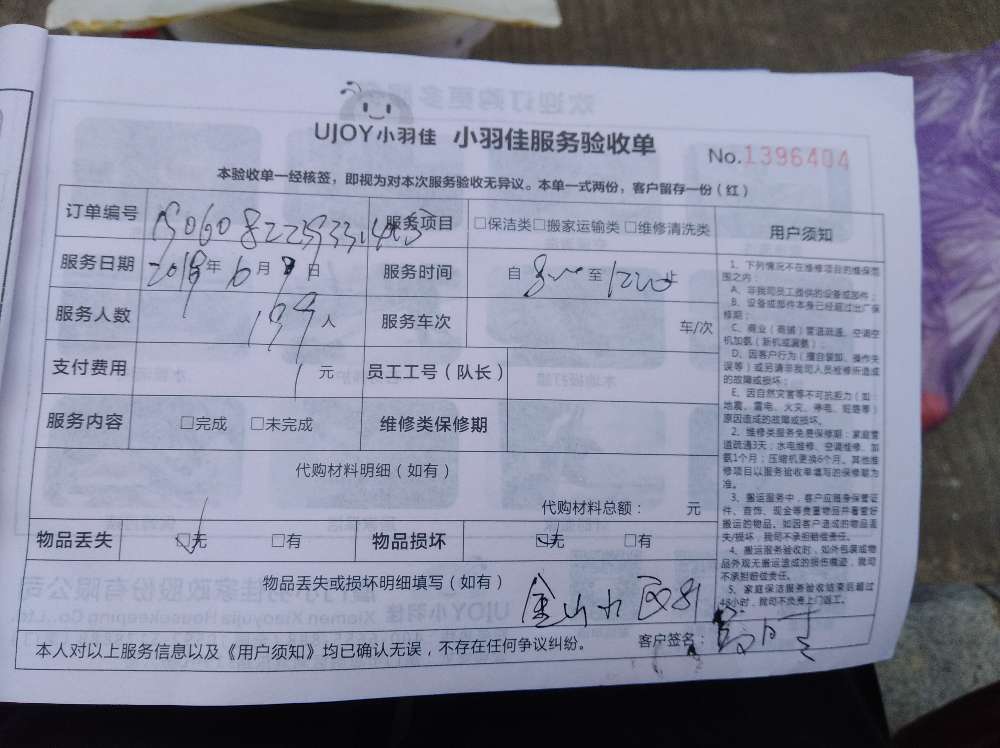 UJOY小羽佳 小羽佳服务验收单
No.1396404
本验收单一经核签，即视为对本次服务验收无异议。本单一式两份，客户留存一份（红）
订单编号 服务项目 □保洁类□搬家运输类 □维修清洗类
服务日期 2018年6月9日 服务时间 自 至 止
服务人数 人 服务车次 车/次
支付费用 元 员工工号（队长）
服务内容 □完成 □未完成 维修类保修期
代购材料明细（如有）
代购材料总额： 元
物品丢失 □无 □有 物品损坏 □无 □有
物品丢失或损坏明细填写（如有）
本人对以上服务信息以及《用户须知》均已确认无误，不存在任何争议纠纷。 客户签名：
用户须知
1、下列情况不在维修项目的维保范
围之内：
A、非我司员工提供的设备或部件；
B、设备或部件本身已经超过出厂保
修期；
C、商业（商铺）管道疏通、空调空
机加氨（新机或漏氨）；
D、因客户行为（擅自装卸、操作失
误等）或另请非我司人员维修所造成
的故障或损坏；
E、因自然灾害等不可抗拒力（如：
地震、雷电、火灾、停电、短路等）
原因造成的故障或损坏。
2、维修类服务免费保修期：家庭管
道疏通3天；水电维修、空调维修、加
氨1个月；压缩机更换6个月。其他维
修项目以服务验收单填写的保修期为
准。
3、搬运服务中，客户应随身保管证
件、首饰、现金等贵重物品并看管好
搬运的物品。如因客户造成的物品丢
失/损坏，我司不承担赔偿责任。
4、搬运服务验收时，如外包装或物
品外观无搬运造成的损伤痕迹，我司
不承担赔偿责任。
5、家庭保洁服务验收结束后超过
48小时，我司不负责上门返工。